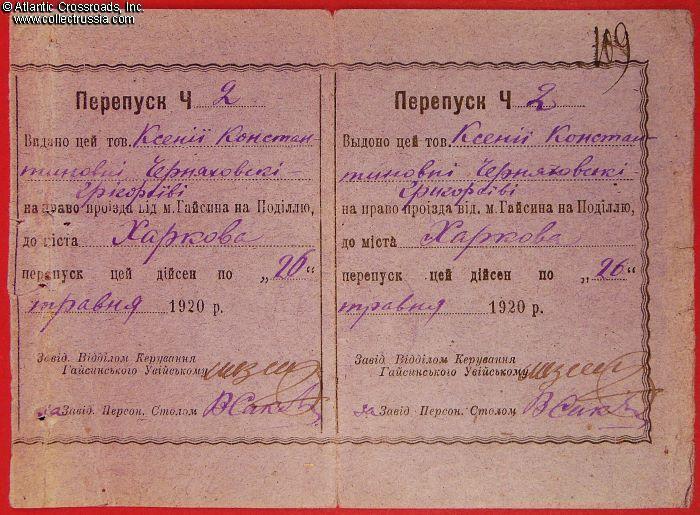 © Atlantic Crossroads, Inc.
www.collectrussia.com
109
Перепуск Ч 2
Видано цей тов. Ксенії Констан
тиновні Черняховскі-
Грігортіві
на право проїзда від м. Гайсина на Поділлю,
до міста Харкова
перепуск цей дійсен по „26“
травня 1920 р.
Завід. Відділом Керування
Гайсинського Увійському
за Завід. Персон. Столом
Перепуск Ч 2
Выдоно цей тов. Ксенії Констан
тиновні Черняховскі-
Грігортіві
на право проїзда від. м. Гайсина на Поділлю,
до міста Харкова
перепуск цей дійсен по „26“
травня 1920 р.
Завід. Відділом Керування
Гайсинського Увійському
за Завід. Персон. Столом